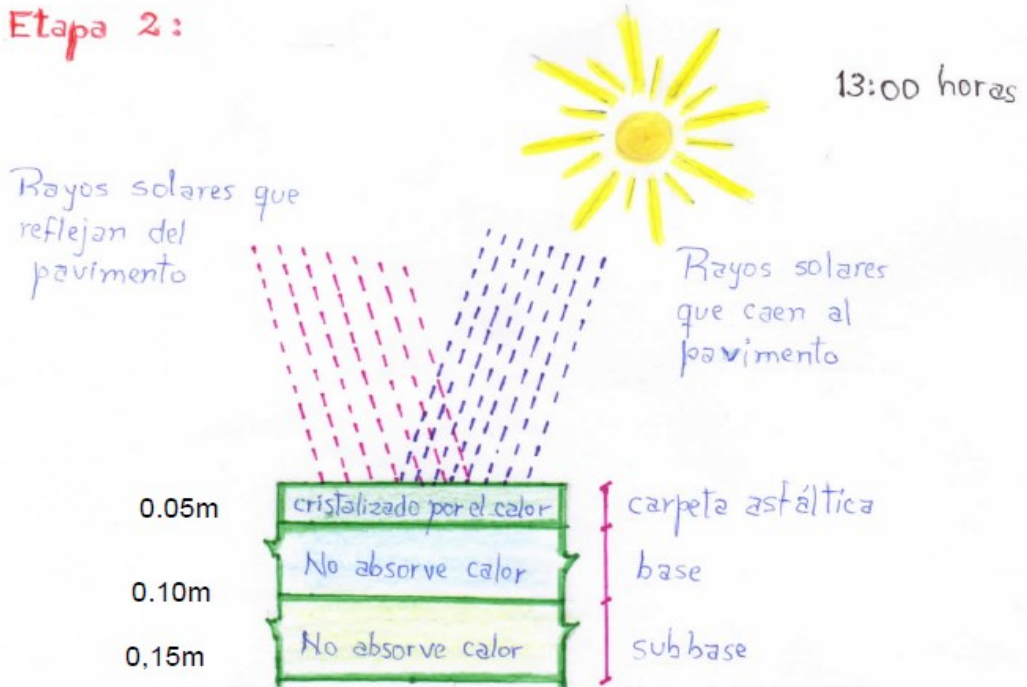 Etapa 2:
13:00 horas
Rayos solares que
reflejan del
pavimento
Rayos solares
que caen al
pavimento
0.05m
cristalizado por el calor
carpeta asfáltica
No absorve calor
base
0.10m
No absorve calor
subbase
0,15m